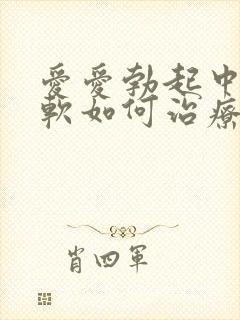 愛愛勃起中
軟如何治療
肖四軍